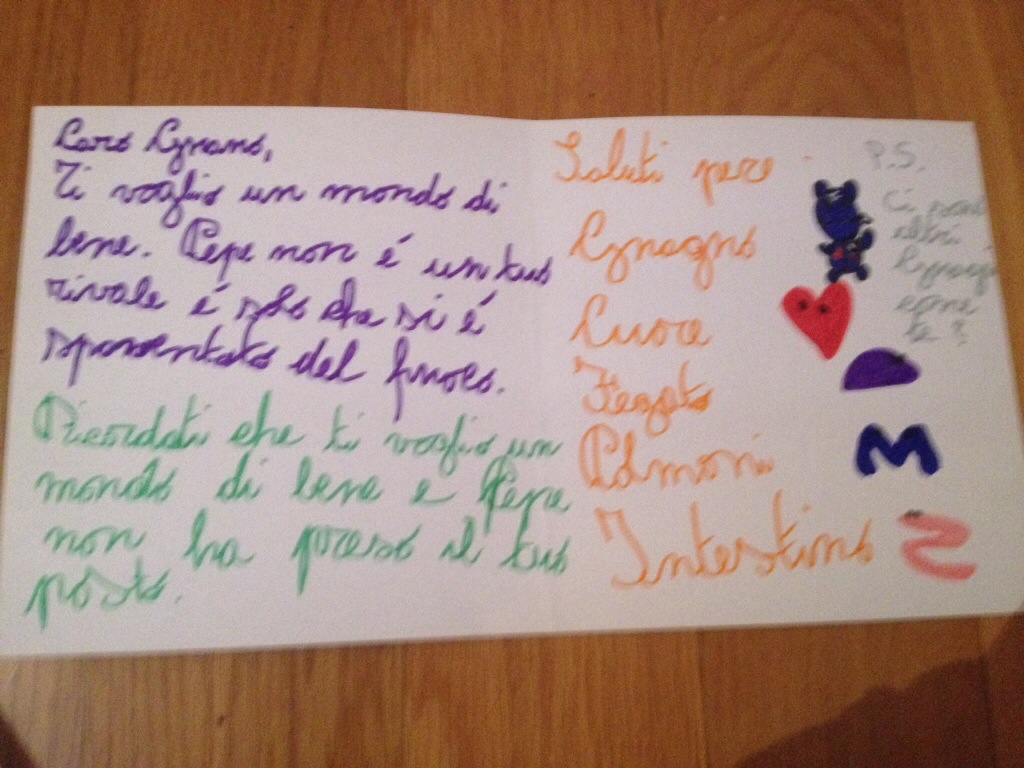 Caro Cynano,
Ti voglio un mondo di
bene. Pepe non é un tuo
rivale é solo che si é
spaventato del fuoco.
Ricordati che ti voglio un
mondo di bene e Pepe
non ha preso il tuo
posto.
Saluti pere
Cynagno
Cuore
Fegato
Polmoni
Intestino
P.S.
Ci sono
altri
come
te?